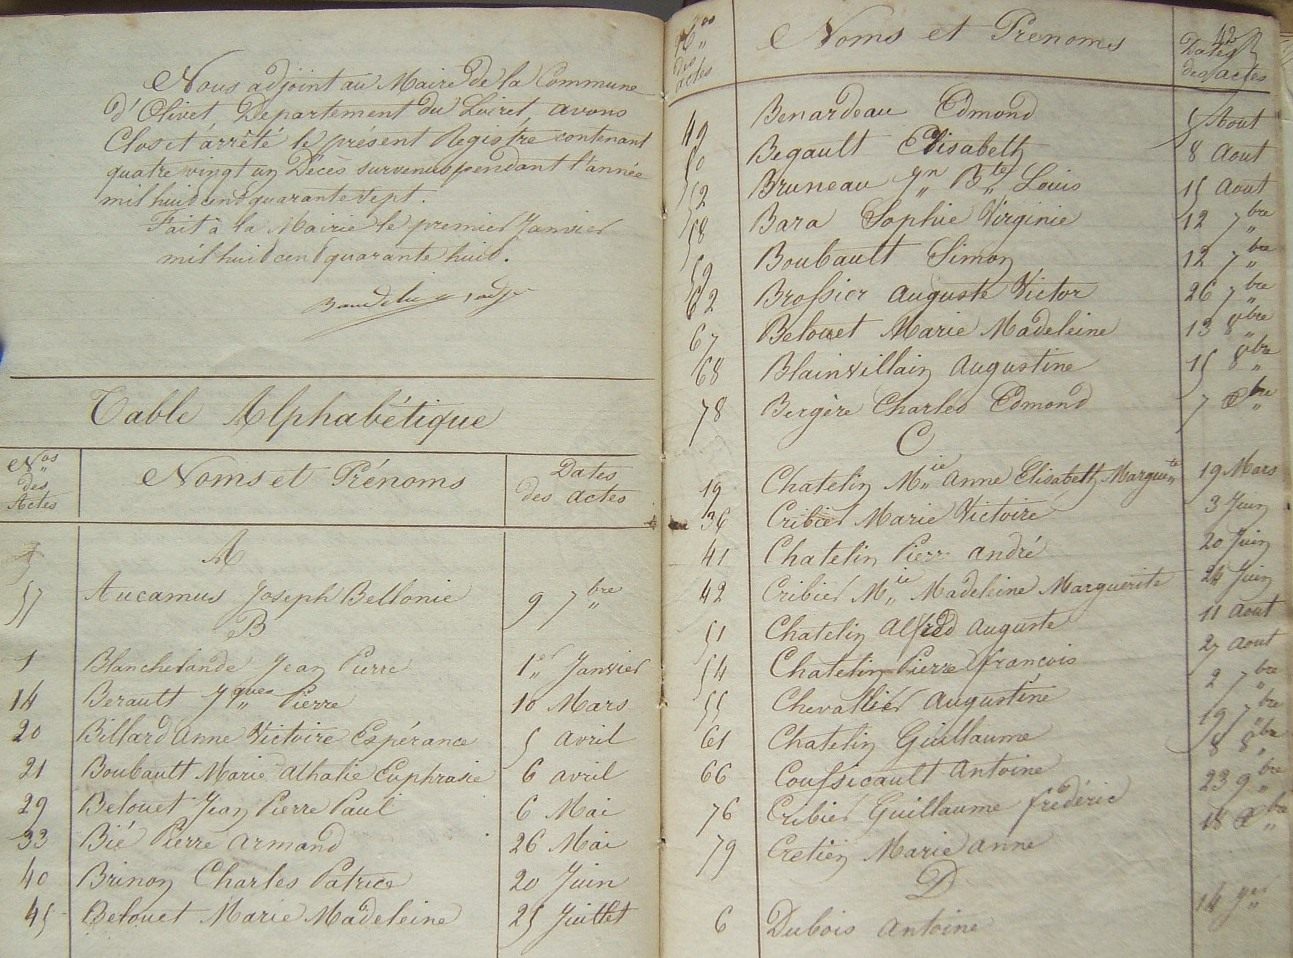 Nous adjoint au Maire de la Commune
d'Olivet, Departement du Loiret, avons
Clos et arrêté le présent Registre contenant
quatre vingt un Décès survenus pendant l'année
mil huit cent quarante sept.
Fait à la Mairie le premier Janvier
mil huit cent quarante huit.
Table Alphabétique
Nos des Actes Noms et Prénoms Dates des actes
A
57 Aucamus Joseph Bellonie 9 7bre
B
1 Blanchelande Jean Pierre 1er Janvier
14 Berault Jques Pierre 10 Mars
20 Billard Anne Victoire Espérance 5 avril
21 Boubault Marie Athalie Euphrasie 6 avril
29 Belouet Jean Pierre Paul 6 Mai
33 Bié Pierre Armand 26 Mai
40 Brinon Charles Patrice 20 Juin
45 Belouet Marie Madeleine 25 Juillet
42
Nos des actes Noms et Prenoms Dates des actes
49 Benardeau Edmond 5 Aout
50 Begault Elisabeth 8 Aout
52 Bruneau Jn Bte Louis 15 Aout
58 Bara Sophie Virginie 12 7bre
59 Boubault Simon 12 7bre
62 Brossier Auguste Victor 26 7bre
67 Belouet Marie Madeleine 13 8bre
68 Blainvillain Augustine 15 8bre
78 Bergère Charles Edmond 7 Xbre
C
19 Chatelin Mie Anne Elisabeth Marguete 19 Mars
36 Cribier Marie Victoire 3 Juin
41 Chatelin Pierre André 20 Juin
42 Cribier Mie Madeleine Marguerite 24 Juin
51 Chatelin Alfred Auguste 11 Aout
54 Chatelin Pierre françois 27 Aout
55 Chevallier Augustine 2 7bre
61 Chatelin Guillaume 19 7bre
66 Coussicault Antoine 8 8bre
76 Cribier Guillaume frédéric 23 9bre
79 Cretien Marie Anne 18 Xbre
D
6 Dubois Antoine 14 Jer